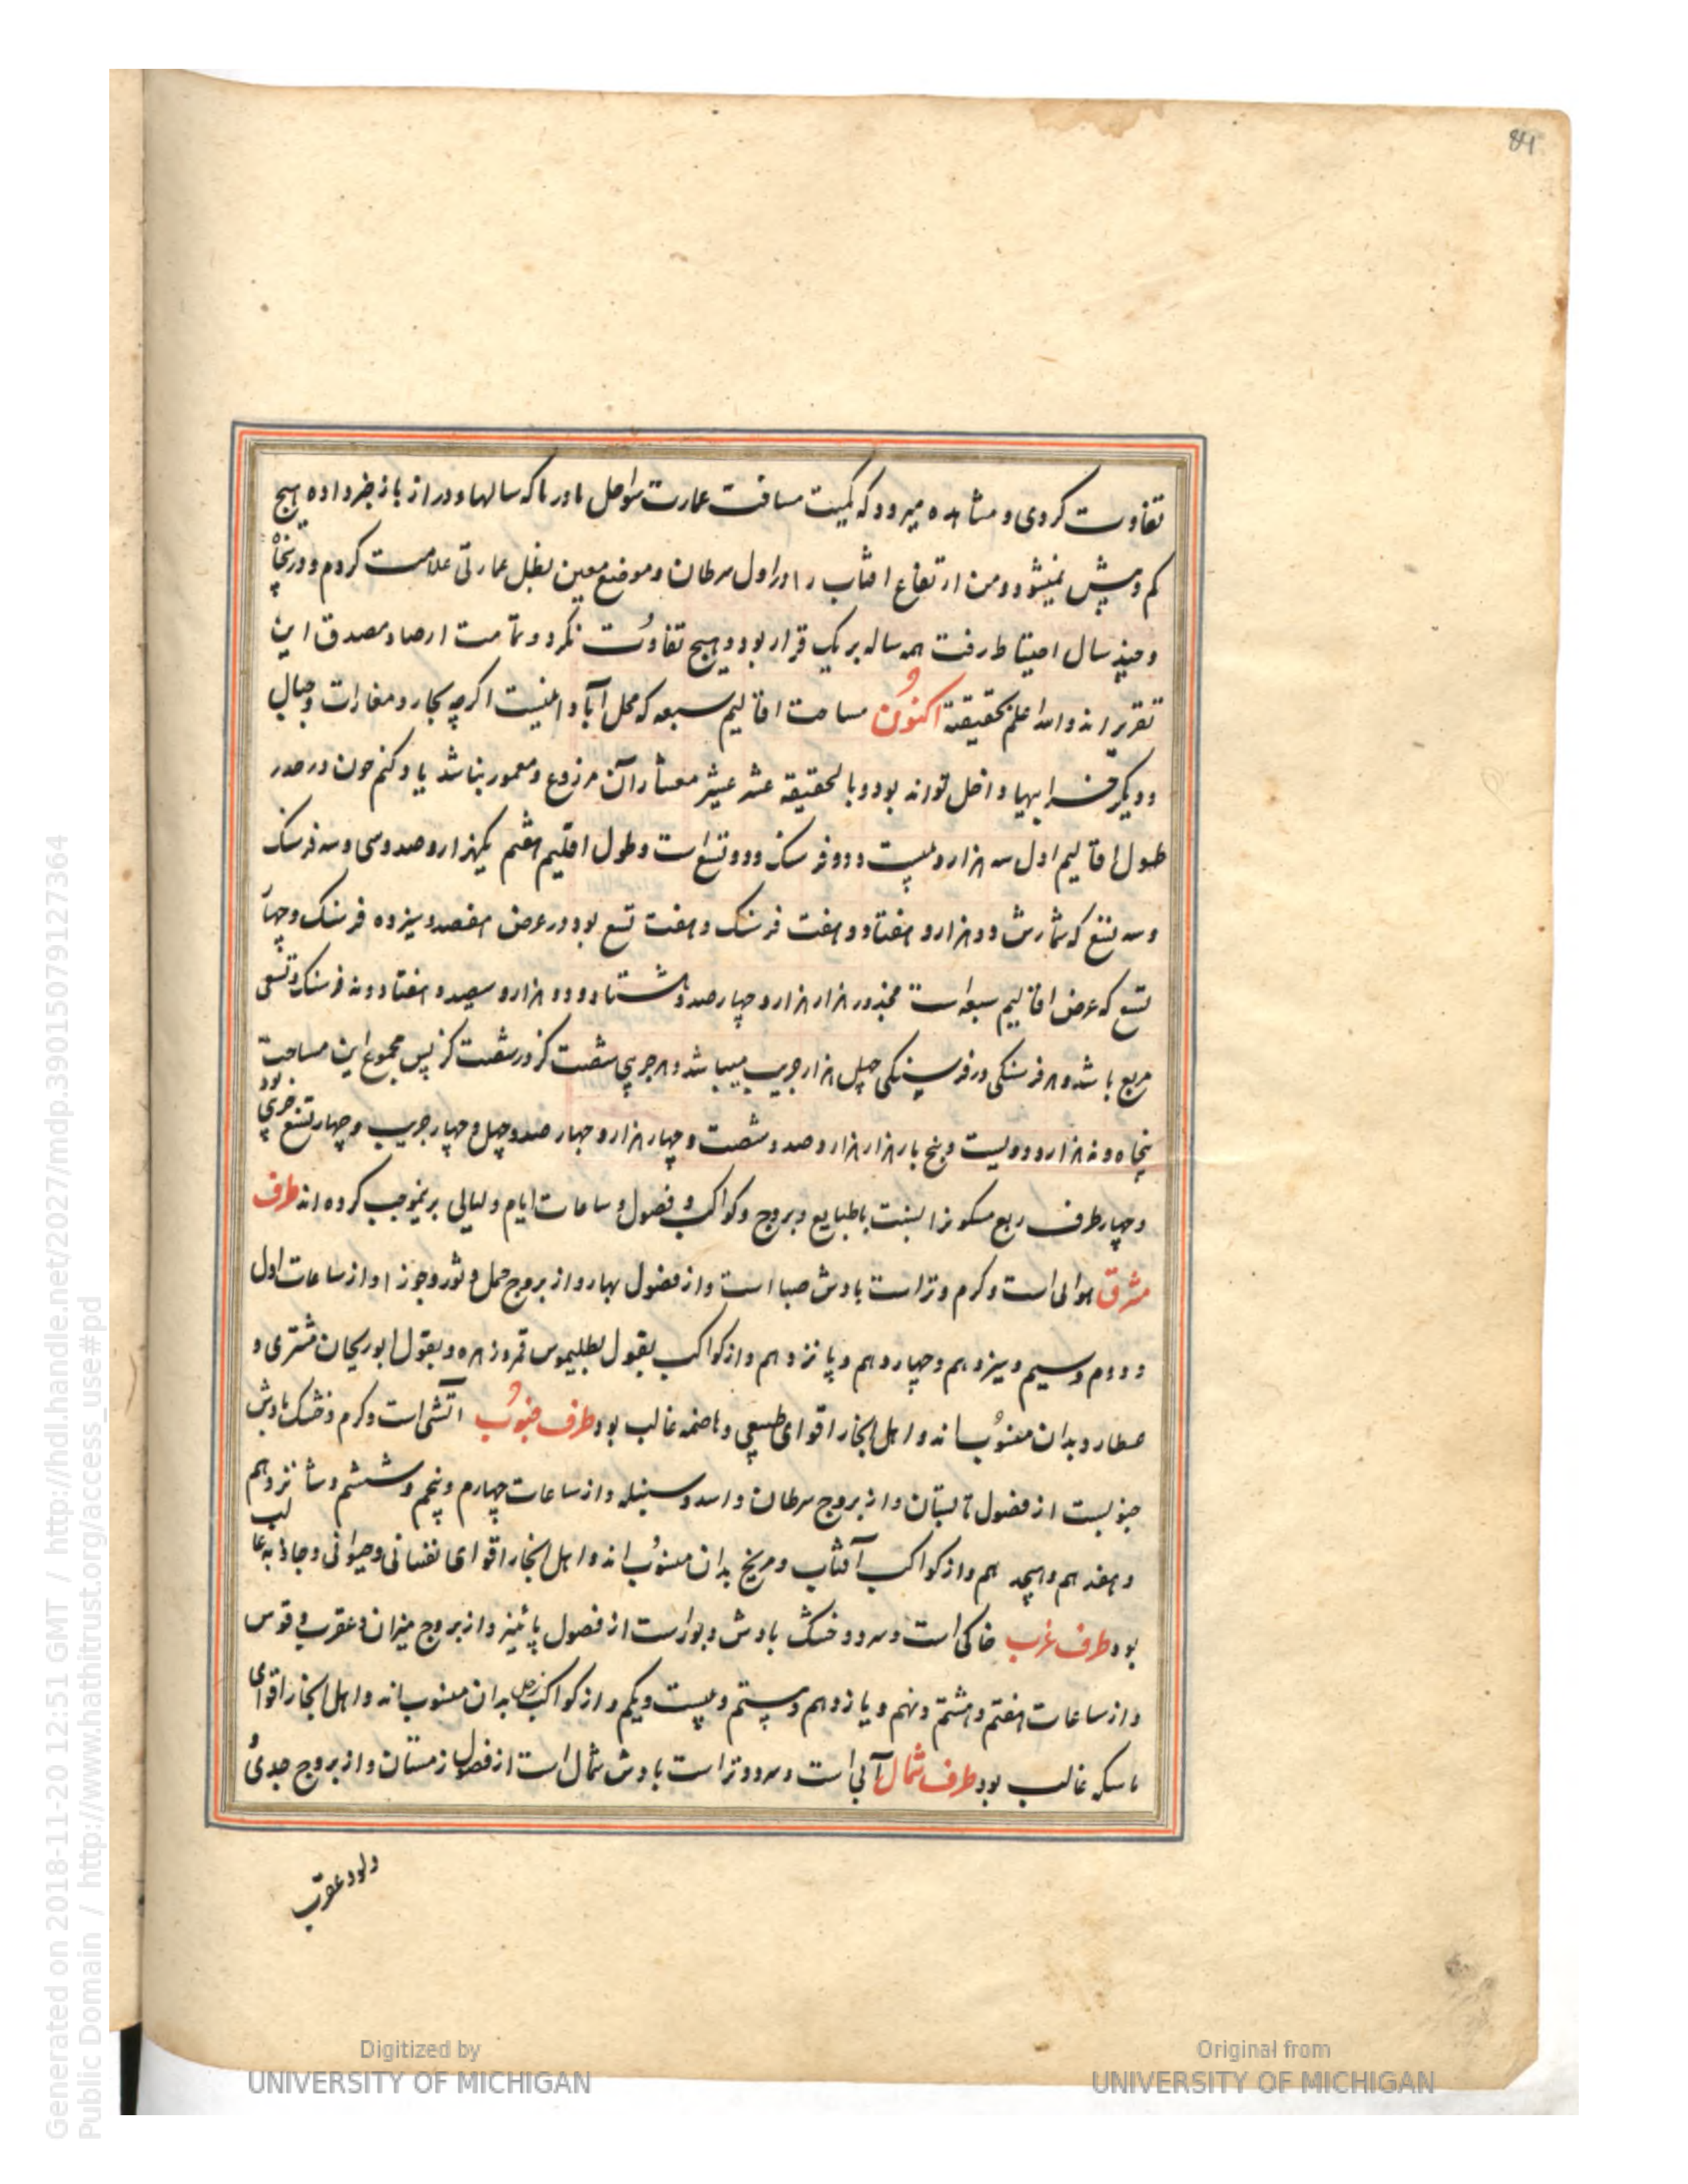 ۸۴
تفاوت کردی و مشاهده میرود که کمیت مسافت عمارت سواحل ما در ما که سالها و دراز باز خبر داده هیچ
کم و بیش نمیشود و من ارتفاع افتاب را در اول سرطان و موضع معین بظل عمارتی علامت کردم و در پنجاه
و چند سال احتیاط رفت همه ساله بر یک قرار بود و هیچ تفاوت نکرد و تمامت ارصاد مصدق این
تقریر اند و الله اعلم بحقیقته اکنون مساحت اقالیم سبعه که محل آبادانیست اکرچه بحار و مغارات و جبال
و دیکر خرابیها داخل تواند بود و بالحقیقه عشر عشیر معشار آن مزروع و معمور نباشد یاد کنم چون در صدر
طول اقالیم اول سه هزار و بیست و دو فرسنک و دو تسع است و طول اقلیم هفتم یکهزار و صد و سی و سه فرسنک
و سه تسع که شمارش دو هزار و هفتاد و هفت فرسنک و هفت تسع بود در عرض هفصد و سیزده فرسنک و چهار
تسع که عرض اقالیم سبعه است مجذور هزار هزار و چهار صد و هشتاد و دو هزار و سیصد و هفتاد و نه فرسنک و تسعی
مربع باشد و هر فرسنکی در فرسنکی چهل هزار جریب میباشد و هر جریبی شصت کز در شصت کز پس مجموع این مساحت
پنجاه و نه هزار و دویست و پنج بار هزار هزار و صد و شصت و چهار هزار و چهار صد و چهل و چهار جریب و چهار تسع جریبی بود
و چهار طرف ربع مسکونرا بنسبت با طبایع و بروج و کواکب و فصول و ساعات ایام و لیالی برینموجب کرده اند طرف
مشرق هوائی است و کرم و تر است بادش صبا است و از فصول بهار و از بروج حمل و ثور و جوزا و از ساعات اول
و دوم و سیم و سیزدهم و چهاردهم و پانزدهم و از کواکب بقول بطلیموس قمر و زهره و بقول ابوریحان مشتری و
عطارد بدان منسوب اند و اهل آنجا را قوای طبیعی و هاضمه غالب بود طرف جنوب آتشی است و کرم و خشک بادش
جنوبست از فصول تابستان و از بروج سرطان و اسد و سنبله و از ساعات چهارم و پنجم و ششم و شانزدهم
و هفدهم و هیجدهم و از کواکب آفتاب و مریخ بدان منسوب اند و اهل آنجا را قوای نفسانی و حیوانی و جاذبه غالب
بود طرف غرب خاکی است و سرد و خشک بادش دبور است از فصول پائیز و از بروج میزان و عقرب و قوس
و از ساعات هفتم و هشتم و نهم و یازدهم و بیستم و بیست و یکم و از کواکب زحل بدان منسوب اند و اهل آنجا را قوای
ماسکه غالب بود طرف شمال آبی است و سرد و تر است بادش شمال است از فصول زمستان و از بروج جدی
دلو و عقرب
Generated on 2018-11-20 12:51 GMT / http://hdl.handle.net/2027/mdp.39015079127364
Public Domain / http://www.hathitrust.org/access_use#pd
Digitized by
UNIVERSITY OF MICHIGAN
Original from
UNIVERSITY OF MICHIGAN